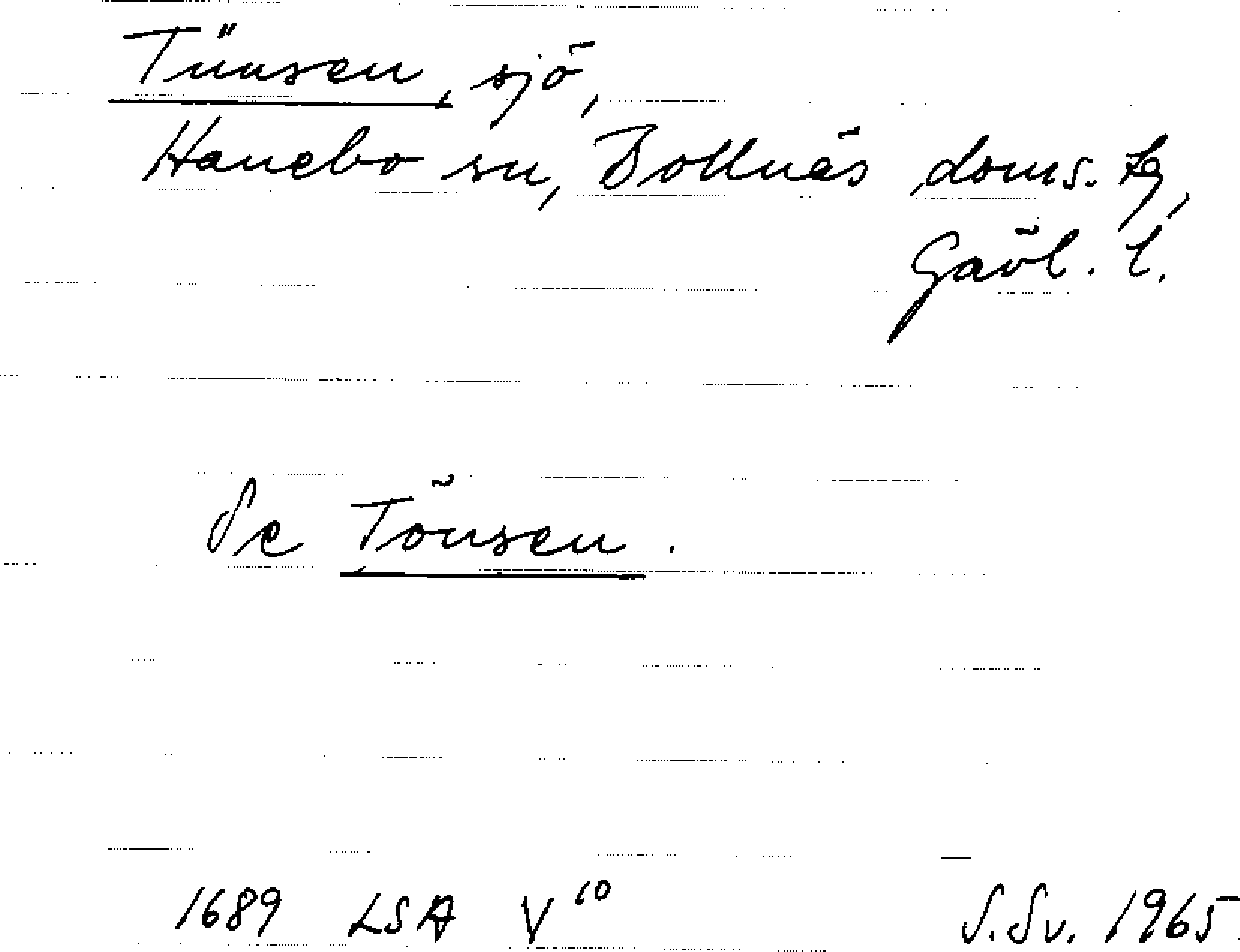 Tünsen, sjö,
Hanebo sn, Bollnäs doms. tg,
Gävl. l.
Se Tönsen.
1689 LSA V¹⁰ S.Sv. 1965.